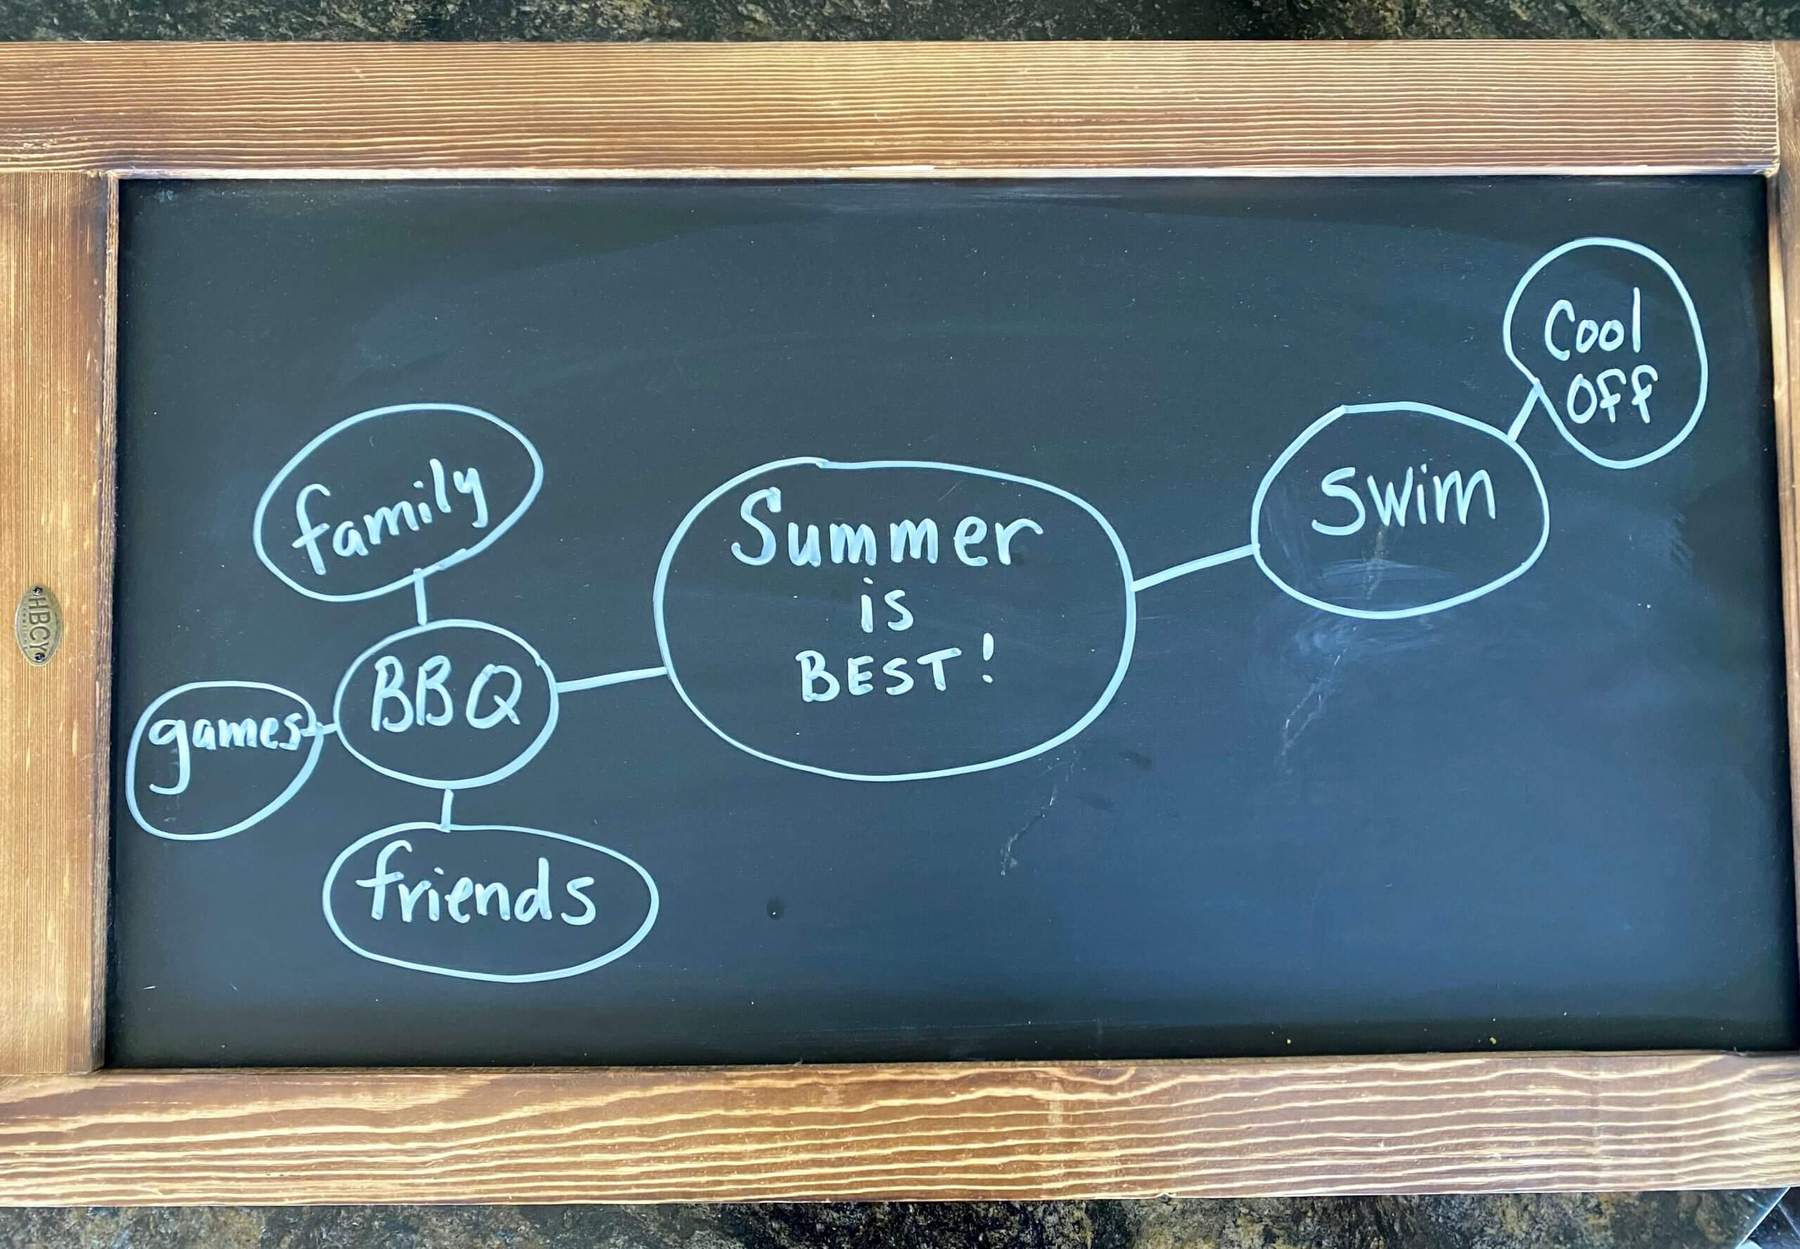 family
games
BBQ
friends
Summer
is
BEST!
swim
Cool
Off
HBCY